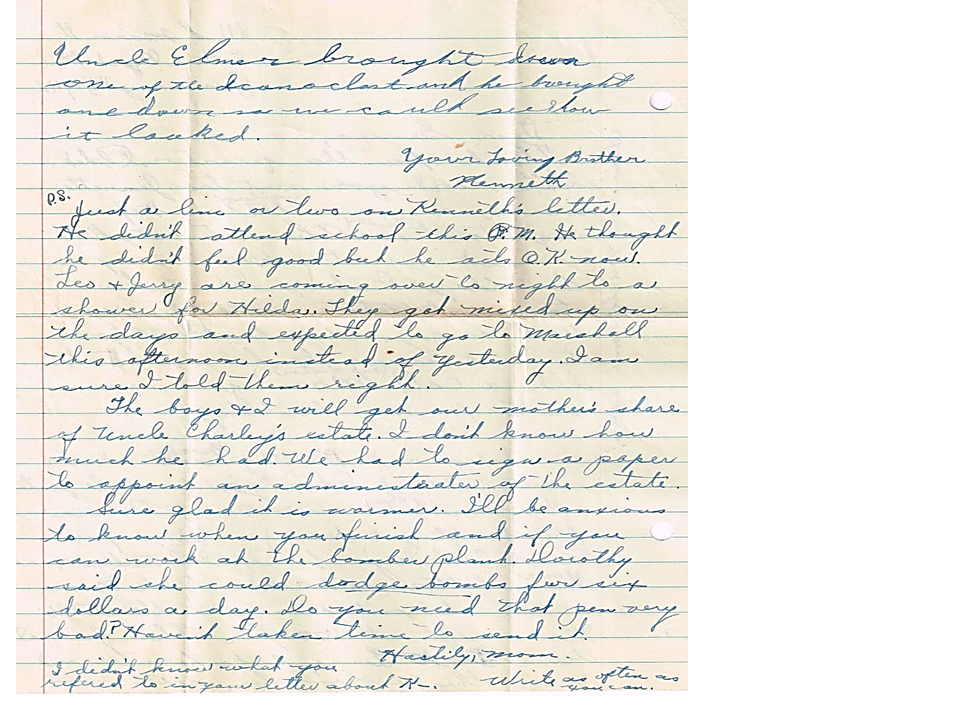 Uncle Elmer brought down
one of the Iconoclast and he brought
one down so we could see how
it looked.
Your Loving Brother
Kenneth
P.S.
Just a line or two on Kenneth's letter.
He didn't attend school this P.M. He thought
he didn't feel good but he acts O.K. now.
Leo & Jerry are coming over to night to a
shower for Hilda. They got mixed up on
the days and expected to go to Marshall
this afternoon instead of yesterday. I am
sure I told them right.
The boys & I will get our mother's share
of Uncle Charley's estate. I don't know how
much he had. We had to sign a paper
to appoint an administrater of the estate.
Sure glad it is warmer. I'll be anxious
to know when you finish and if you
can work at the bomber plant. Dorothy
said she could dodge bombs for six
dollars a day. Do you need that pen very
bad? Haven't taken time to send it.
Hastily, Mom.
I didn't know what you
refered to in your letter about K—.
Write as often as
you can.